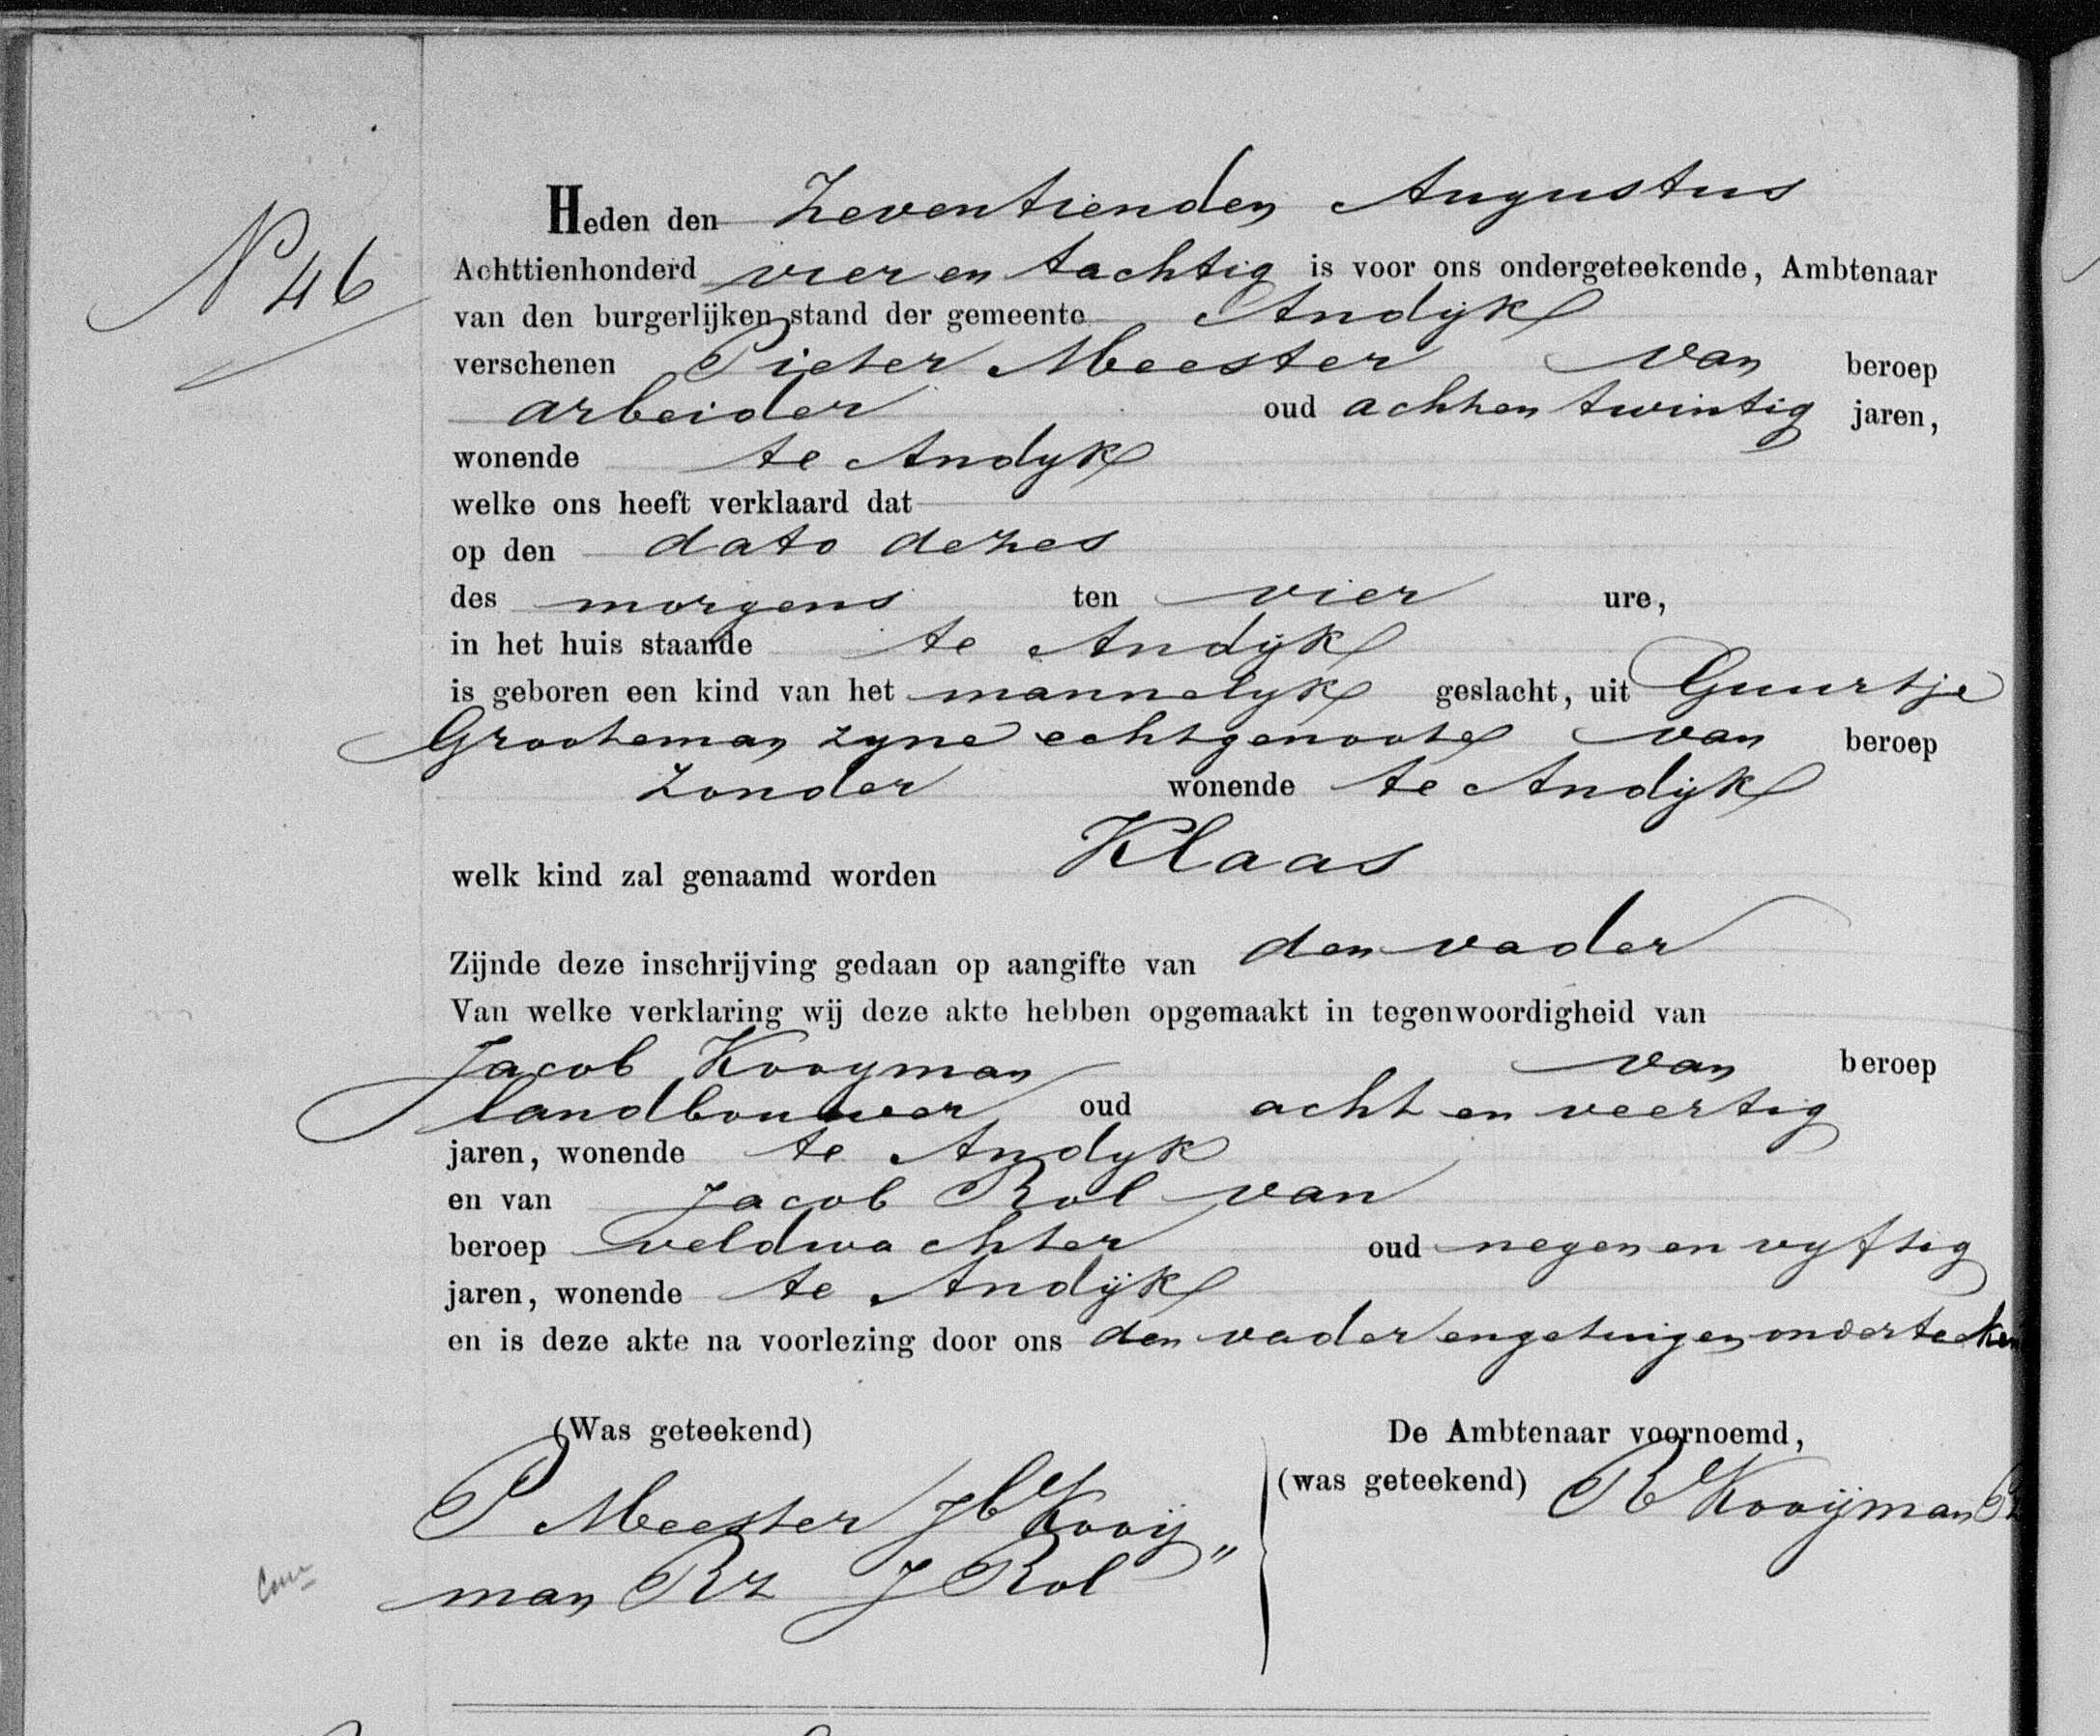 Nº 46
Heden den Zeventienden Augustus
Achttienhonderd vier en tachtig is voor ons ondergeteekende, Ambtenaar
van den burgerlijken stand der gemeente Andijk
verschenen Pieter Meester van beroep
arbeider oud achten twintig jaren,
wonende te Andyk
welke ons heeft verklaard dat
op den dato dezes
des morgens ten vier ure,
in het huis staande te Andijk
is geboren een kind van het mannelyk geslacht, uit Guurtje
Grooteman zyne echtgenoote van beroep
zonder wonende te Andijk
welk kind zal genaamd worden Klaas
Zijnde deze inschrijving gedaan op aangifte van den vader
Van welke verklaring wij deze akte hebben opgemaakt in tegenwoordigheid van
Jacob Kooyman van beroep
landbouwer oud acht en veertig
jaren, wonende te Andyk
en van Jacob Rol van
beroep veldwachter oud negen en vyftig
jaren, wonende te Andijk
en is deze akte na voorlezing door ons den vader en getuigen onderteeken
(Was geteekend) De Ambtenaar voornoemd,
(was geteekend) R Kooijman
P Meester Jb Kooij"
man Rz J Rol